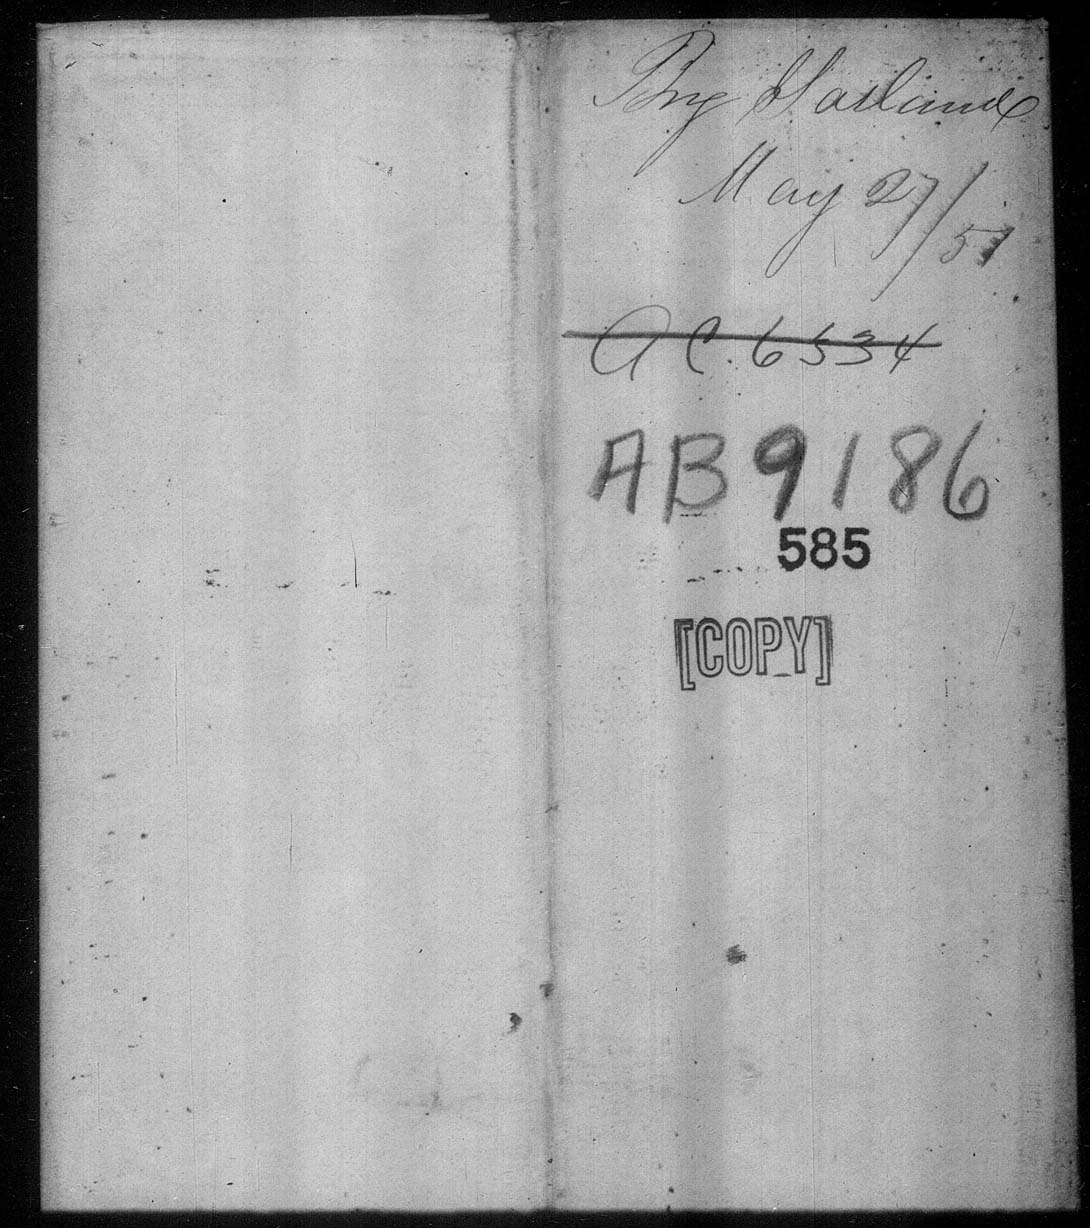 Brig Garland
May 27/51
A C. 6534
AB 9186
585
[COPY]